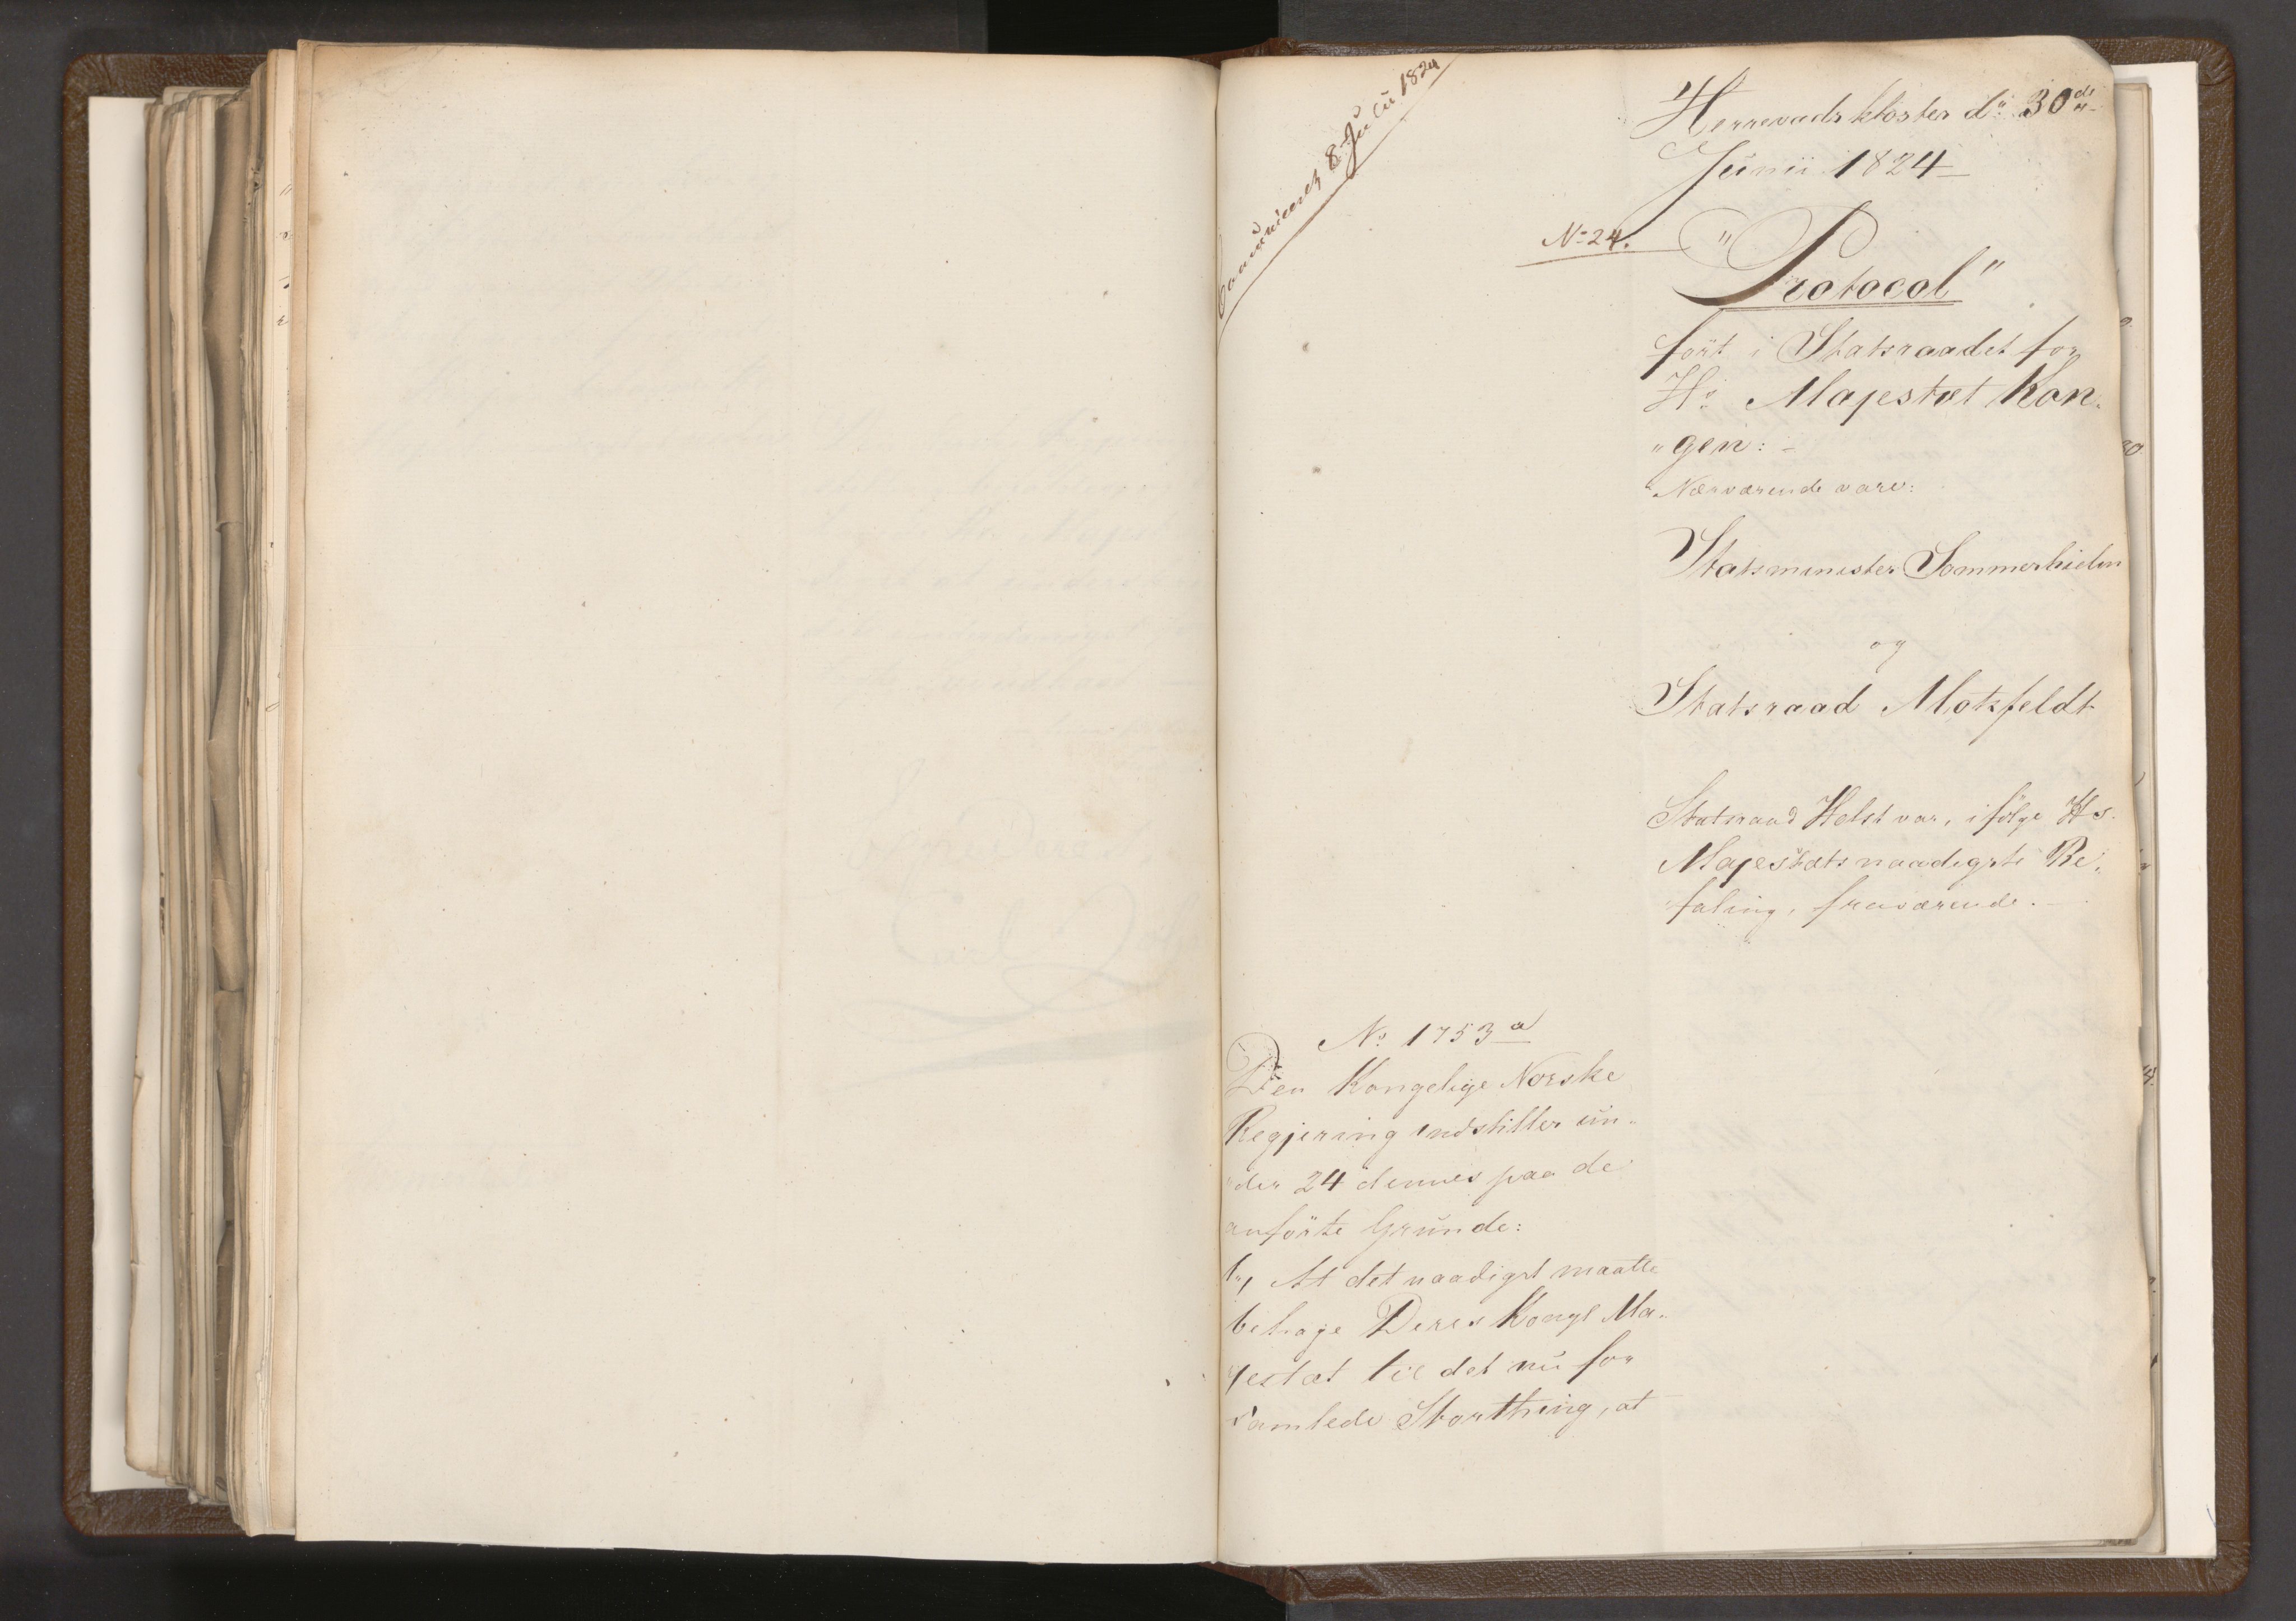 Communiceret 8 Julii 1824
Herrevadskloster dn 30de
Junii 1824
No 24.
"Protocol"
fört i Statsraadet for
Hs Majestæt Kon-
"gen:
Nærværende vare:
Statsminister Sommerhielm
og
Statsraad Motzfeldt
Statsraad Holst var, ifölge Hs
Majestæts naadigste Be-
faling, fraværende.
No 1753 a
Den Kongelige Norske
Regjering indstiller un-
"der 24 dennes paa de
anförte Grunde:
1., At det naadigst maatte
behage Deres Kongl Ma-
jestæt til det nu for
samlede Storthing, at